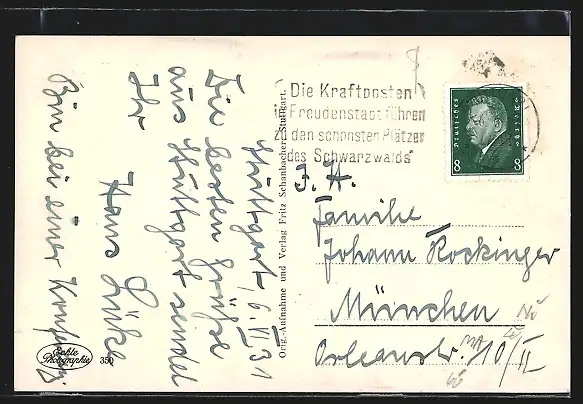 Stuttgart, 6. VI. 31
Die besten Grüße
aus Stuttgart sendet
Ihr
Hans Lüke
Bin bei einer Konferenz
Echte
Photographie
350
Orig.-Aufnahme und Verlag Fritz Schanbacher, Stuttgart.
Die Kraftposten
in Freudenstadt führen
zu den schönsten Plätzen
des Schwarzwalds
Deutsches
Reich
8
8
Familie
Johann Rockinger
München
Orleansstr. 10/II